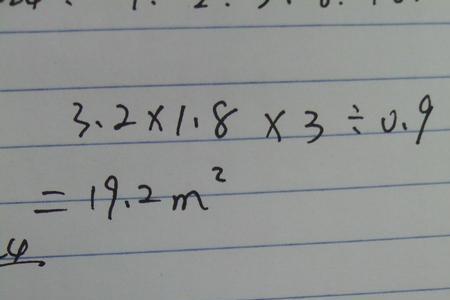 3.2×1.8×3÷0.9
=19.2m²